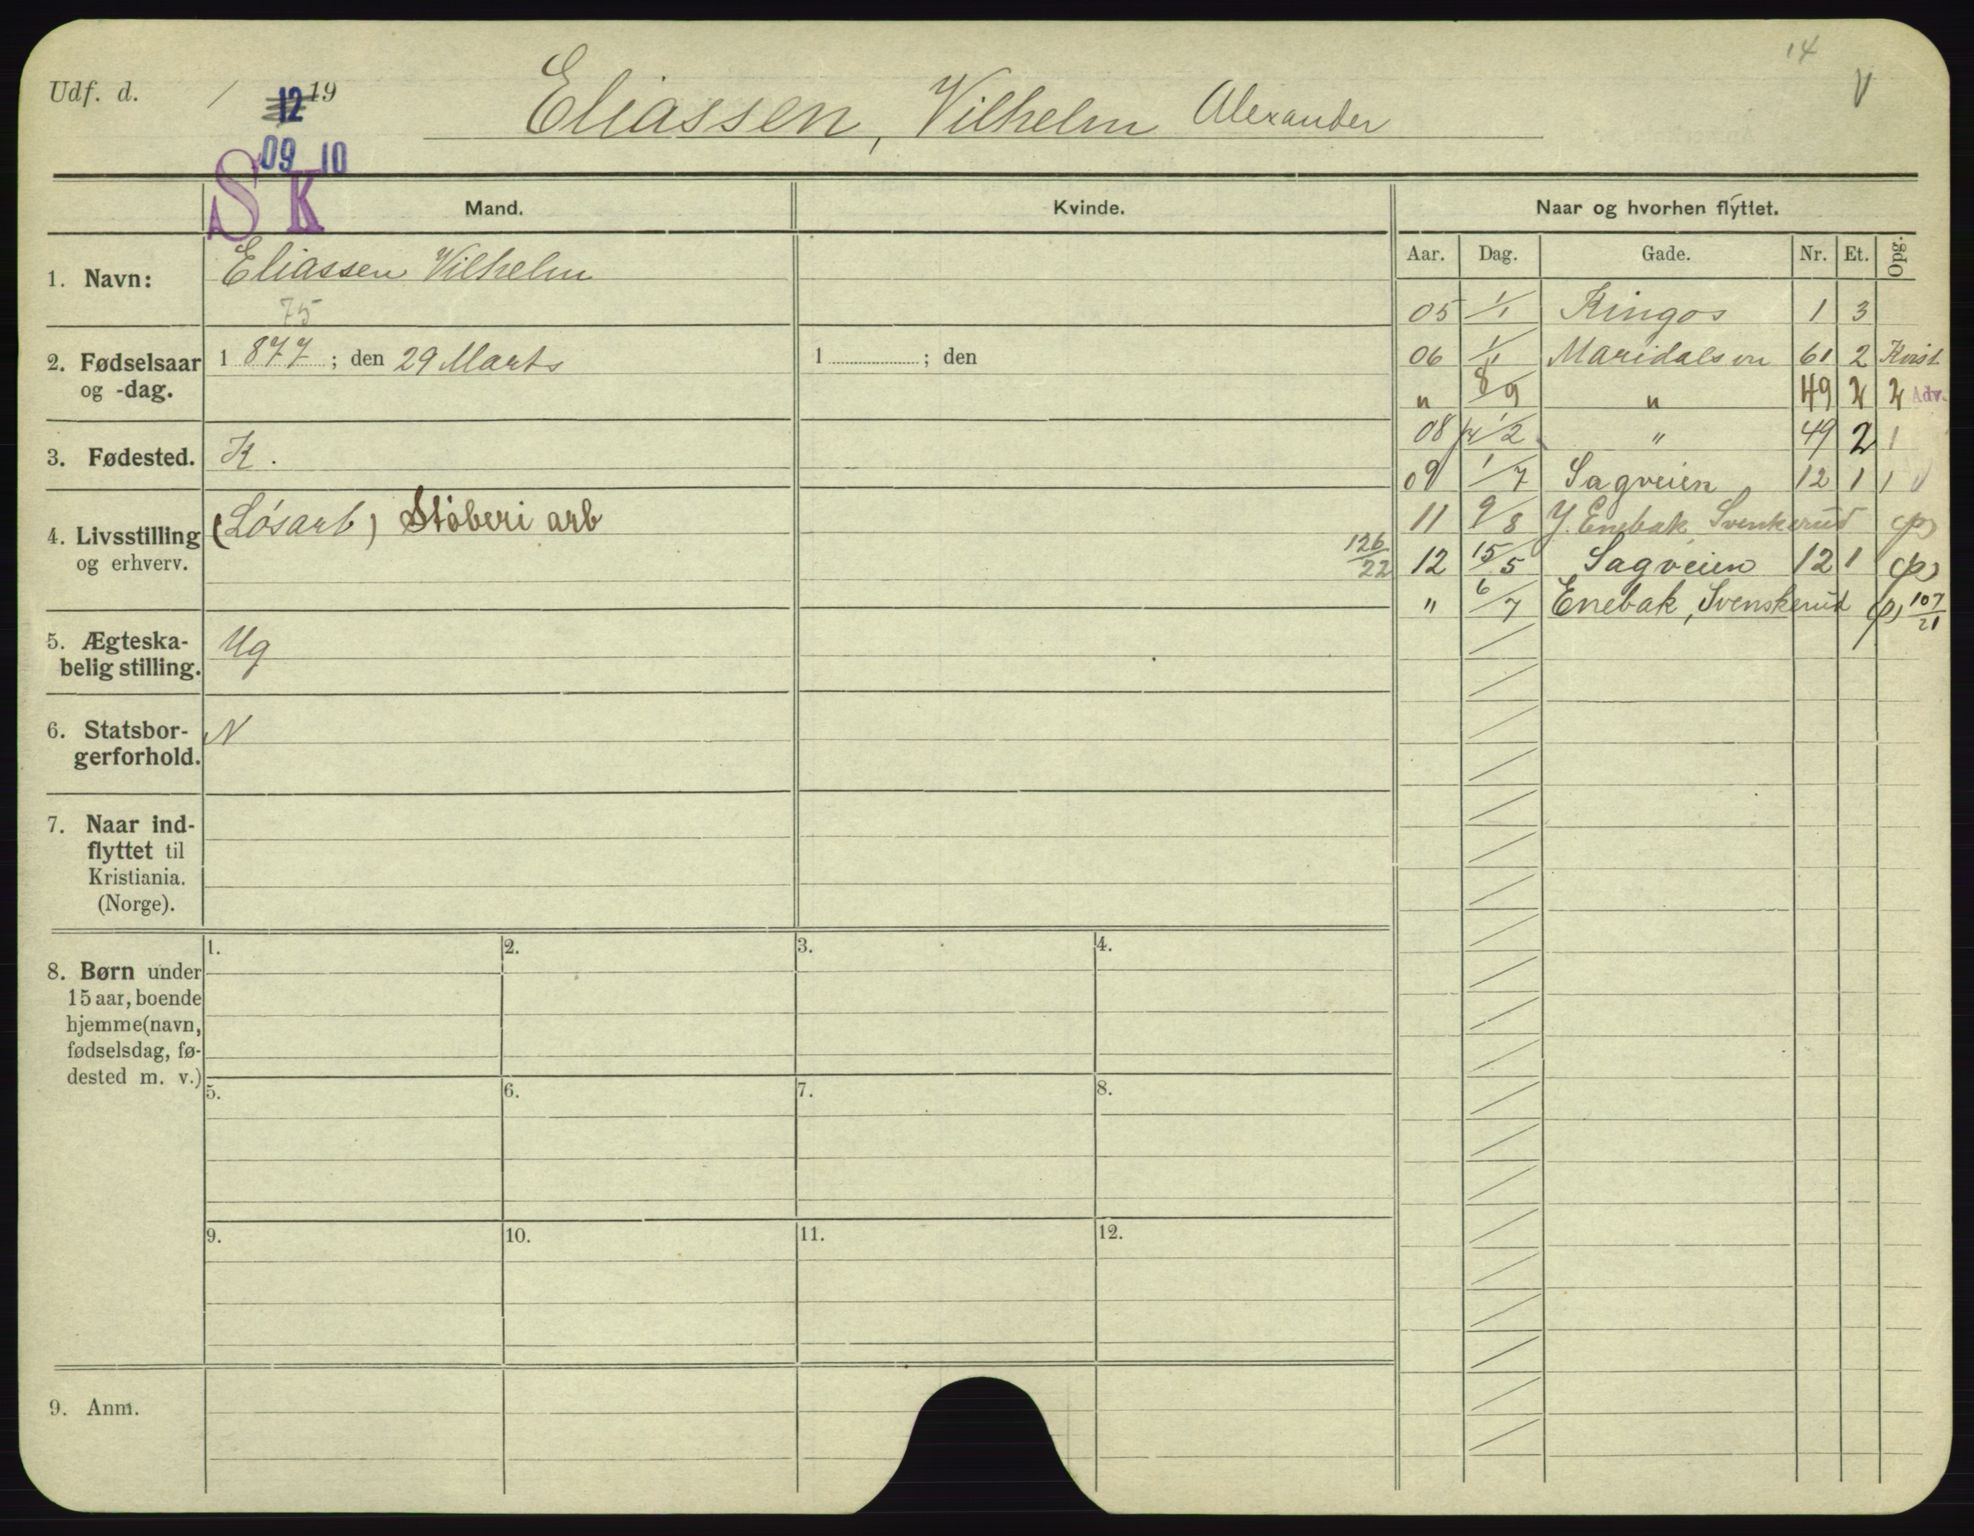 14
V
Udf. d. / 19
12
Eliassen, Vilhelm Alexander
09 10
S K
Mand.
Kvinde.
Naar og hvorhen flyttet.
Aar. Dag. Gade. Nr. Et. Opg.
1. Navn:
Eliassen Vilhelm
75
2. Fødselsaar
og -dag.
1 877 ; den 29 Marts
1 ; den
3. Fødested.
K.
4. Livsstilling
og erhverv.
(Løsarb) Støberi arb
5. Ægteska-
belig stilling.
Ug
6. Statsbor-
gerforhold.
N
7. Naar ind-
flyttet til
Kristiania.
(Norge).
8. Børn under
15 aar, boende
hjemme (navn,
fødselsdag, fø-
dested m. v.)
1. 2. 3. 4.
5. 6. 7. 8.
9. 10. 11. 12.
9. Anm.
05 1/1 Kingos 1 3
06 1/1 Maridalsvn 61 2 Krist
" 8/9 " 49 2 2 Adv.
08 1/2 " 49 2 1
09 1/7 Sagveien 12 1 1
11 9/8 Y. Enebak Svenkerud
126/22 12 15/5 Sagveien 12 1
" 6/7 Enebak, Svenskerud 107/21